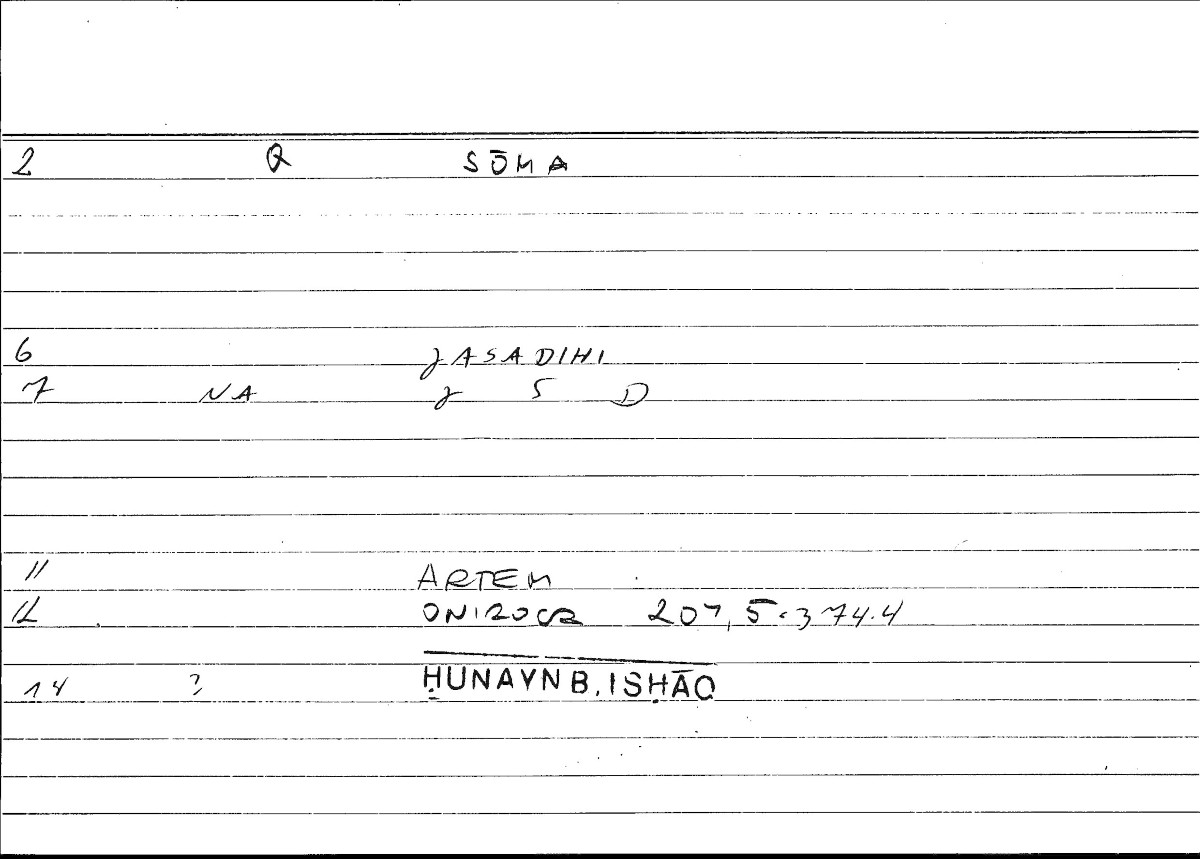 2 Q SŌMA
6 JASADIHI
7 NA J S D
11 ARTEM
12 ONIROCR 207,5 374.4
14 ? ḤUNAYN B. ISḤĀQ